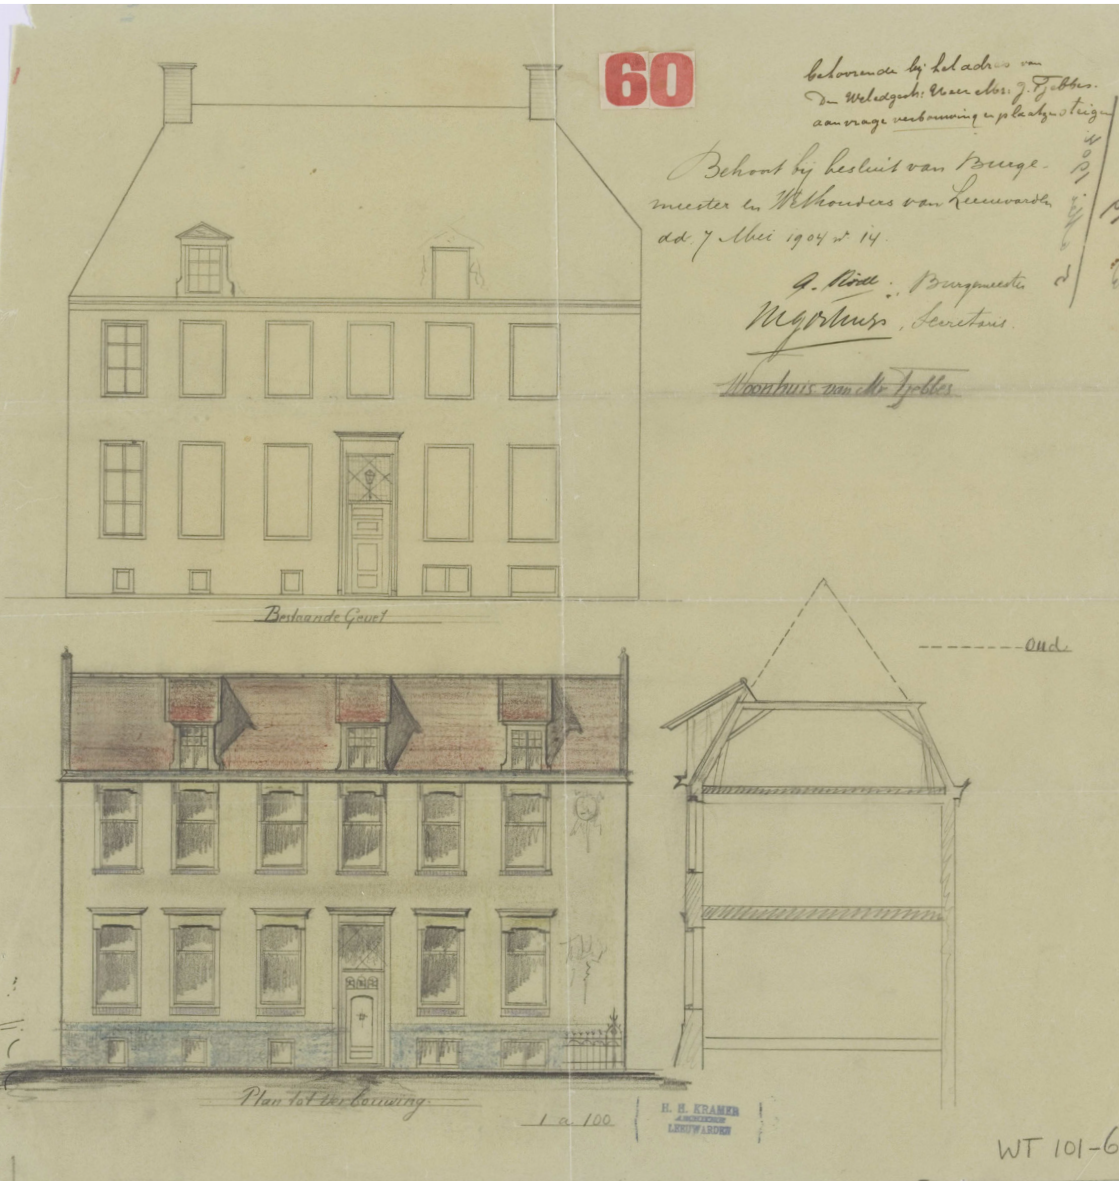 60
behoorende bij het adres van
Den Weledgestr: Heer Mr: J. Tjebbes.
aanvrage verbouwing en plaatsen steiger
Behoort bij besluit van Burge-
meester en Wethouders van Leeuwarden
dd. 7 Mei 1904 nº 14.
Burgemeester
Secretaris.
Woonhuis van Mr Tjebbes
Bestaande Gevel
Oud.
Plan tot verbouwing.
1 a 100
H. H. KRAMER
ARCHITECT
LEEUWARDEN
WT 101-6